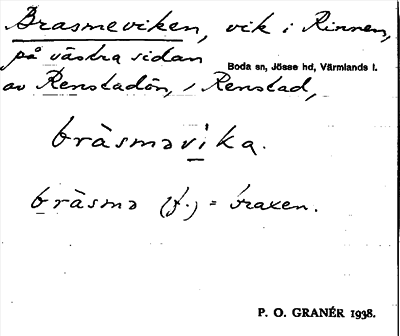 Brasmeviken, vik i Rinnen,
på västra sidan
Boda sn, Jösse hd, Värmlands l.
av Renstadön, i Renstad,
bràsməvika.
bràsmə (f.) = braxen.
P. O. GRANÉR 1938.